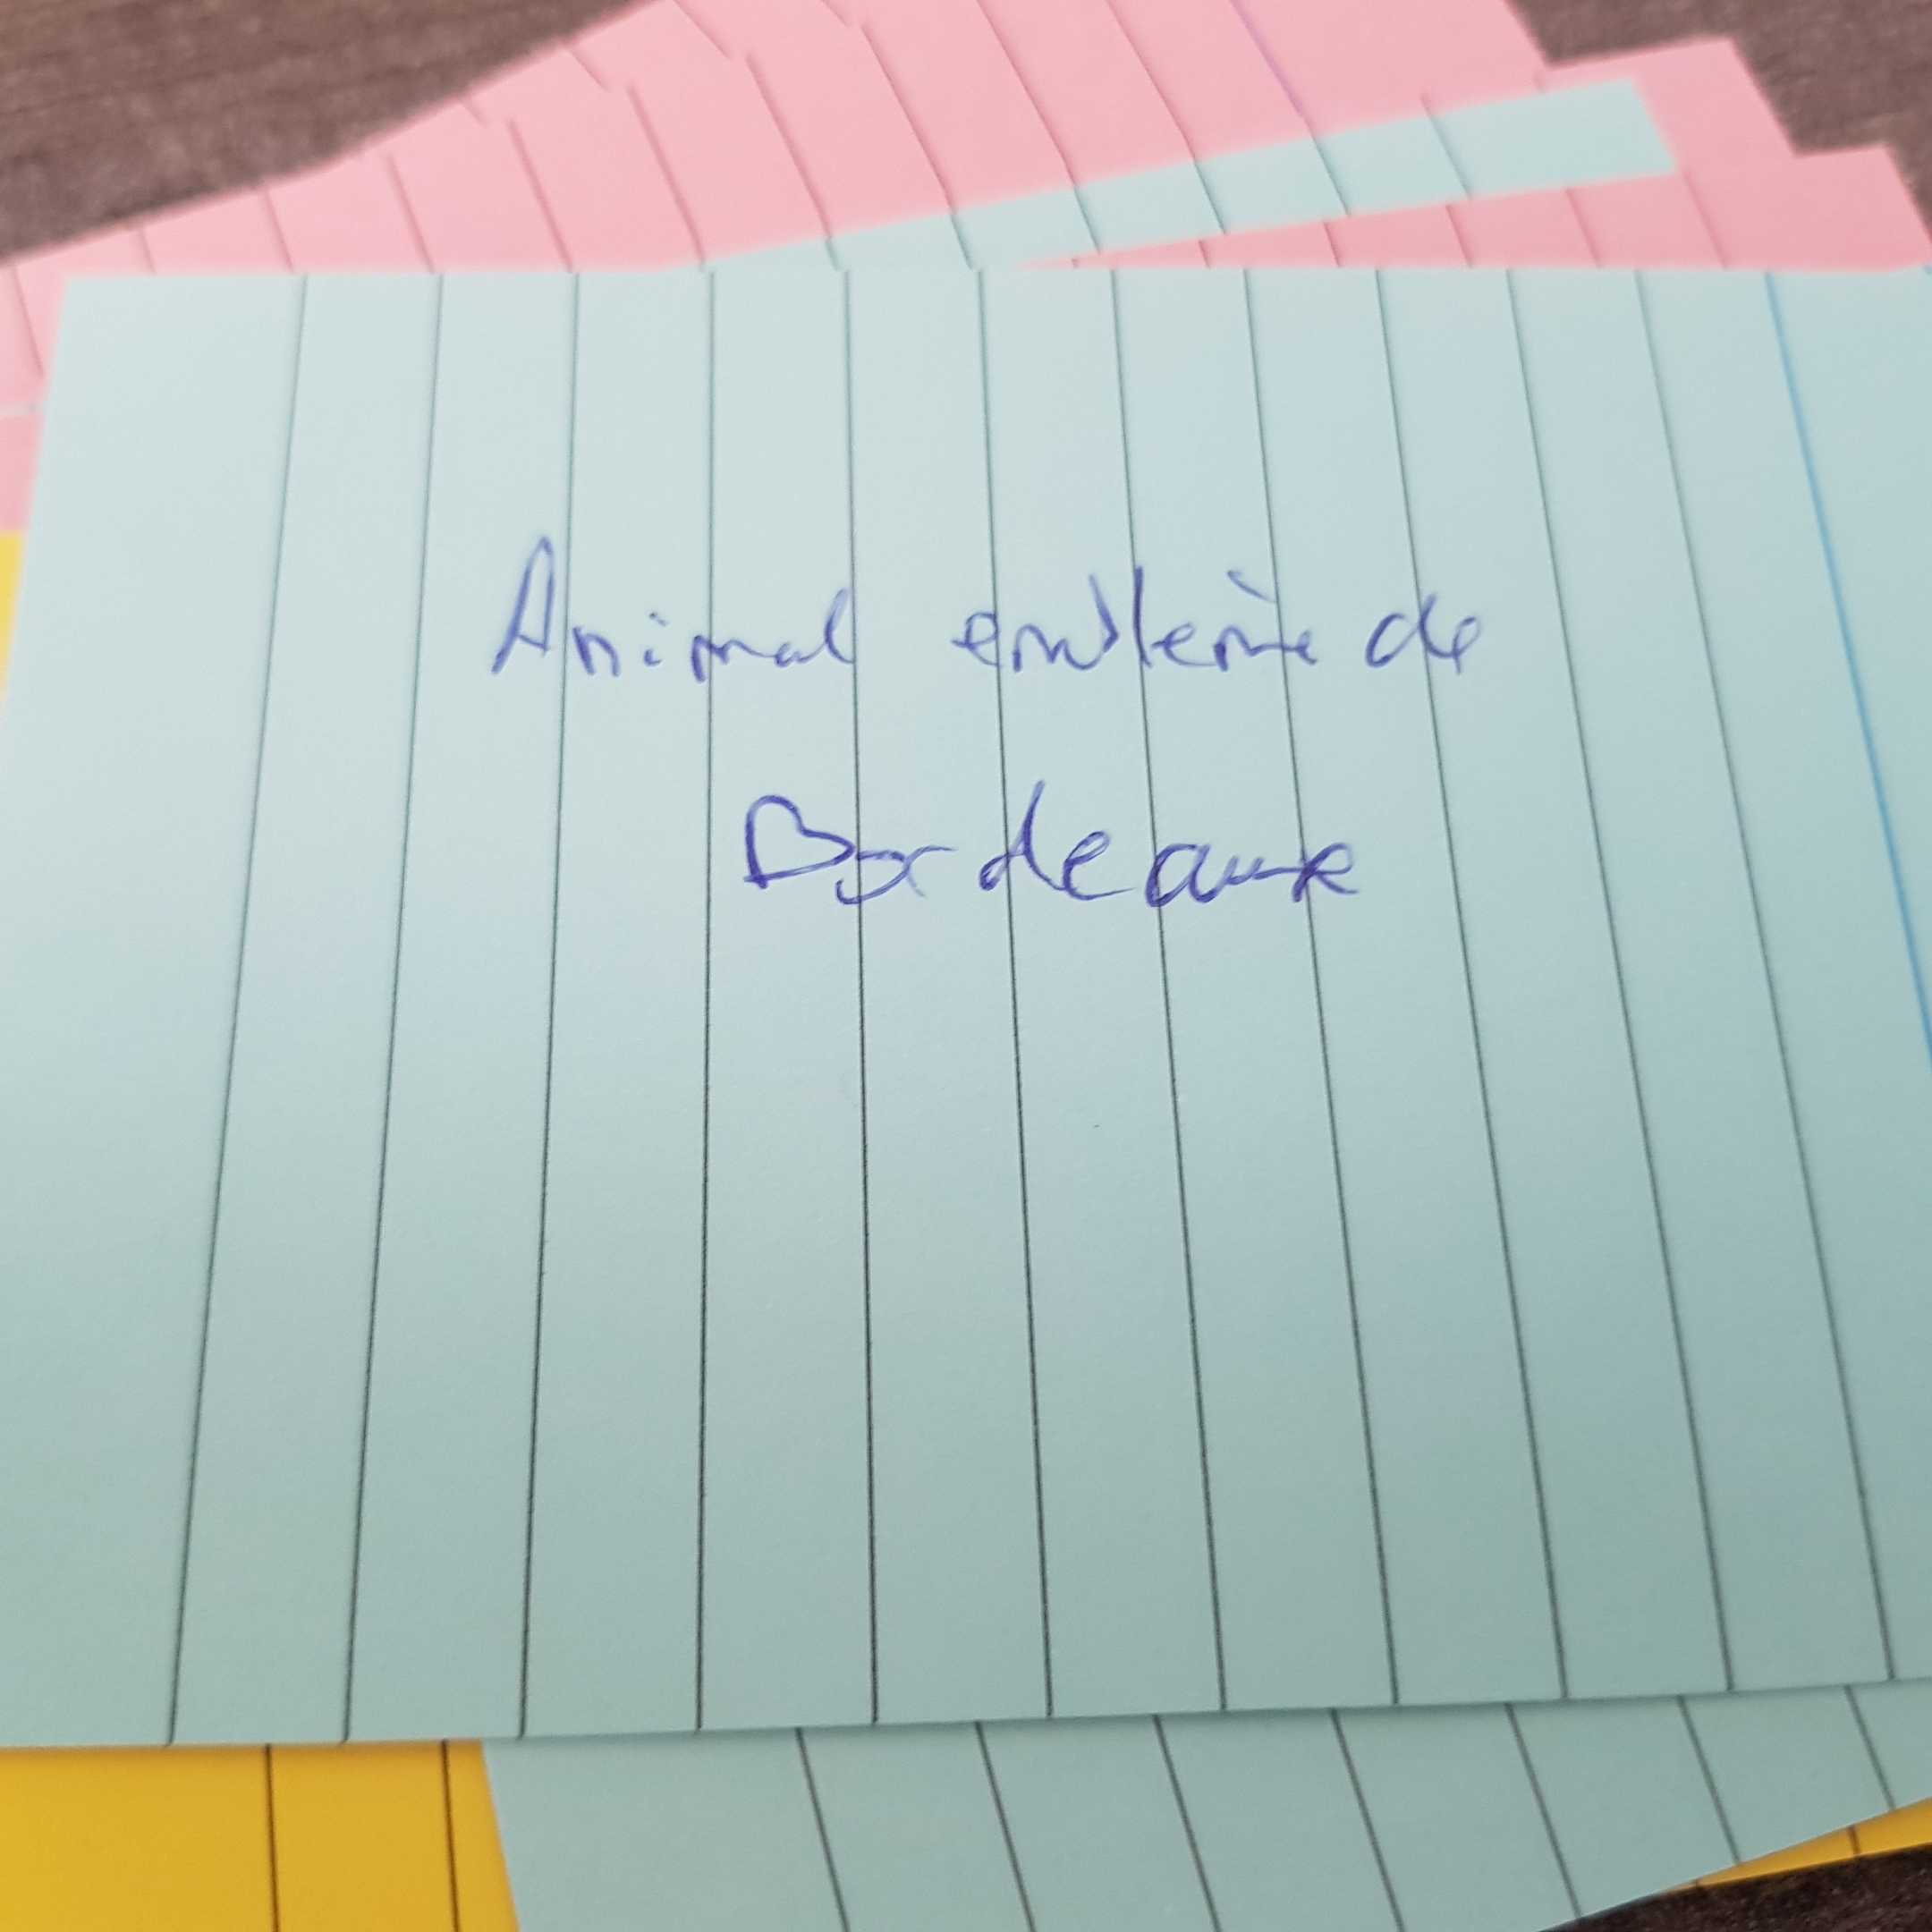 Animal emblème de
Bordeaux